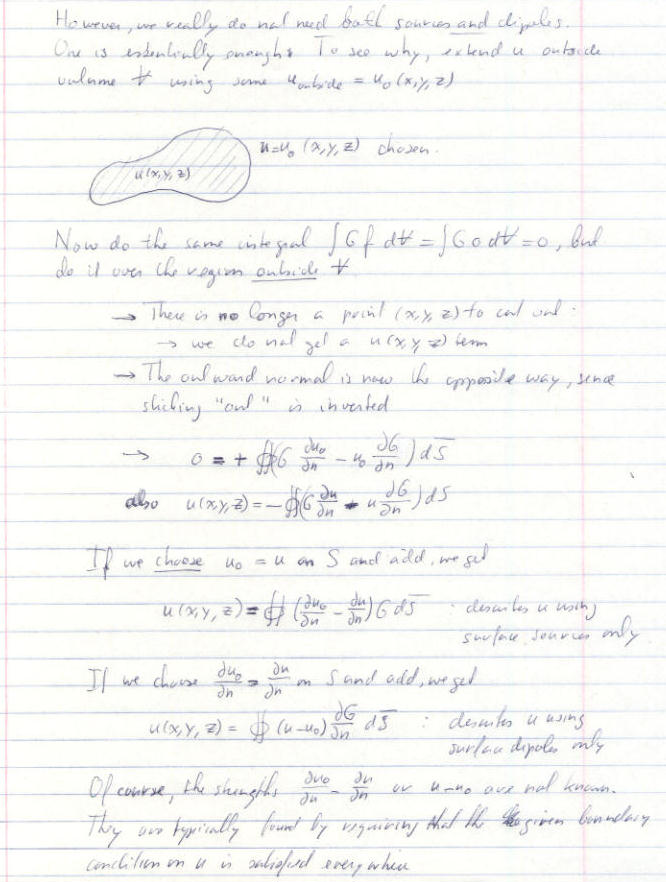 However, we really do not need both sources and dipoles.
One is essentially enough. To see why, extend u outside
volume V using some u_outside = u₀(x,y,z)
u=u₀ (x,y,z) chosen.
u(x,y,z)
Now do the same integral ∫G f dV = ∫G 0 dV = 0, but
do it over the region outside V
→ There is no longer a point (x,y,z) to cut out :
→ we do not get a u(x,y,z) term
→ The outward normal is now the opposite way, since
sticking "out" is inverted
→ 0 = + ∯(G ∂u₀/∂n − u₀ ∂G/∂n) dS
also u(x,y,z) = − ∯(G ∂u/∂n − u ∂G/∂n) dS
If we choose u₀ = u on S and add, we get
u(x,y,z) = ∯ (∂u₀/∂n − ∂u/∂n) G dS : describes u using
surface sources only
If we choose ∂u₀/∂n = ∂u/∂n on S and add, we get
u(x,y,z) = ∯ (u−u₀) ∂G/∂n dS : describes u using
surface dipoles only
Of course, the strengths ∂u₀/∂n − ∂u/∂n or u−u₀ are not known.
They are typically found by requiring that the given boundary
condition on u is satisfied everywhere